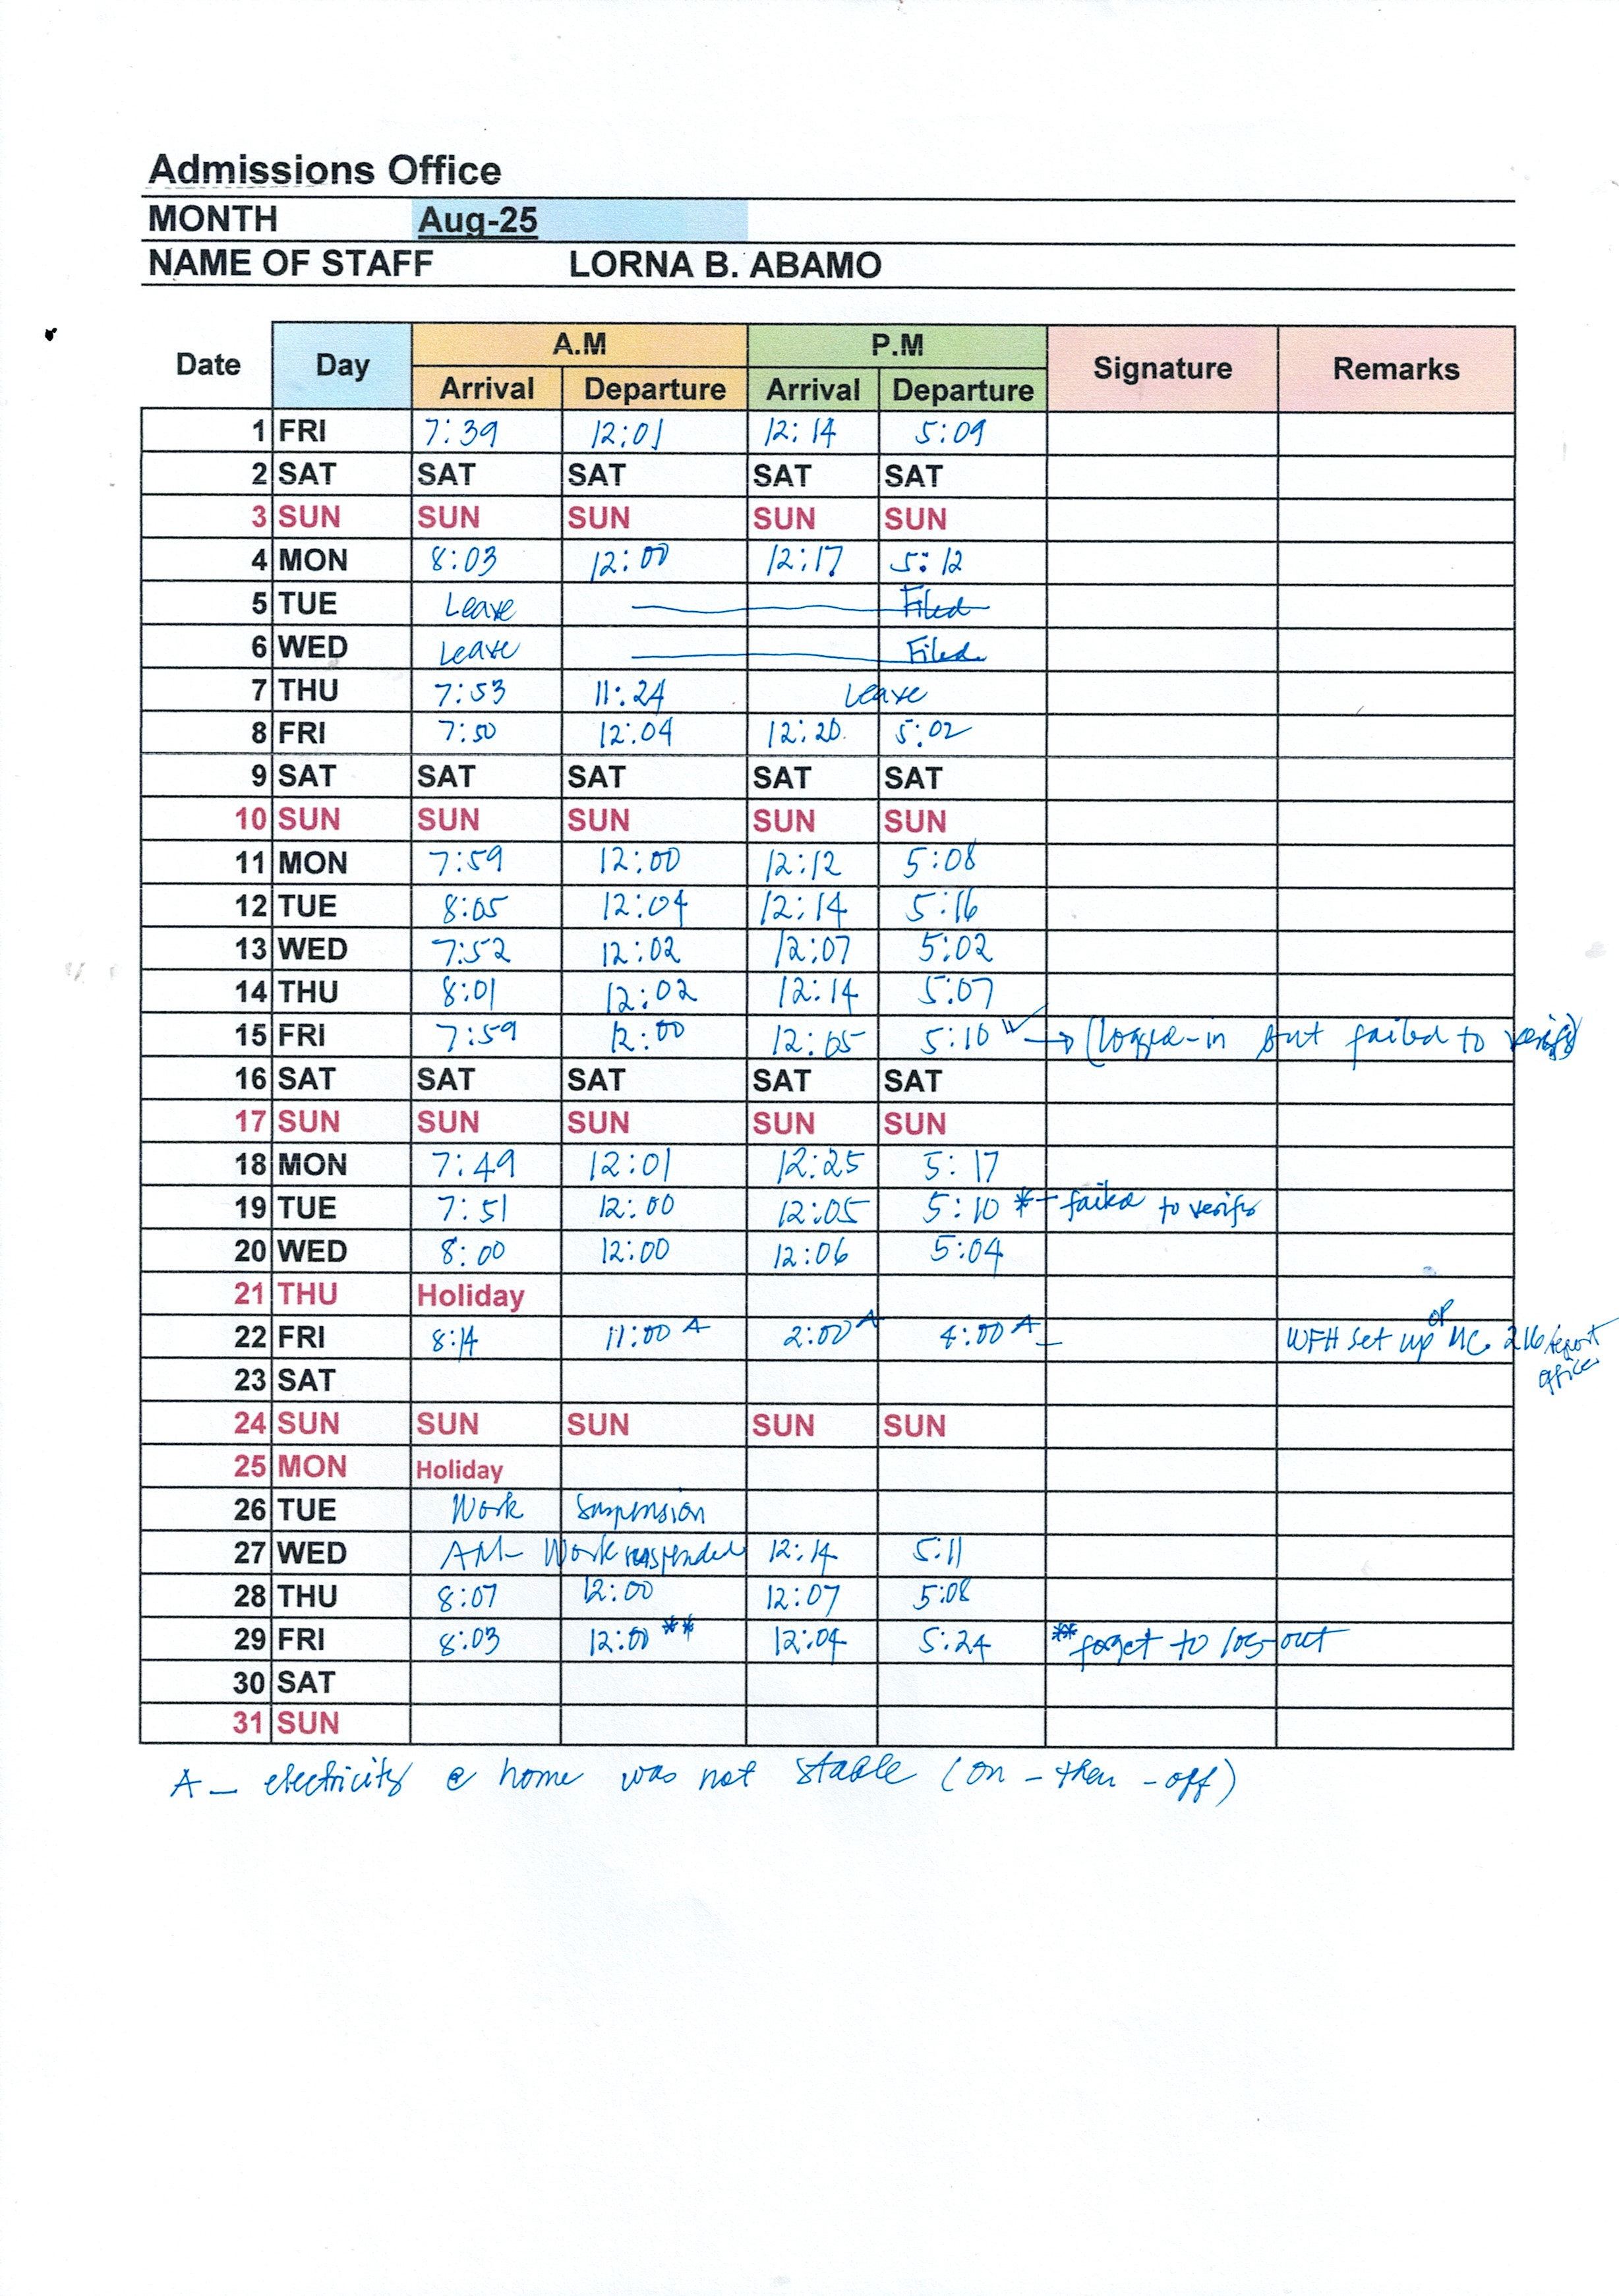 Admissions Office
MONTH Aug-25
NAME OF STAFF LORNA B. ABAMO
Date Day A.M P.M Signature Remarks
Arrival Departure Arrival Departure
1 FRI 7:39 12:01 12:14 5:09
2 SAT SAT SAT SAT SAT
3 SUN SUN SUN SUN SUN
4 MON 8:03 12:00 12:17 5:12
5 TUE Leave Filed
6 WED Leave Filed
7 THU 7:53 11:24 Leave
8 FRI 7:50 12:04 12:20 5:02
9 SAT SAT SAT SAT SAT
10 SUN SUN SUN SUN SUN
11 MON 7:59 12:00 12:12 5:08
12 TUE 8:05 12:04 12:14 5:16
13 WED 7:52 12:02 12:07 5:02
14 THU 8:01 12:02 12:14 5:07
15 FRI 7:59 12:00 12:05 5:10 → (logged-in but failed to verify)
16 SAT SAT SAT SAT SAT
17 SUN SUN SUN SUN SUN
18 MON 7:49 12:01 12:25 5:17
19 TUE 7:51 12:00 12:05 5:10 * - failed to verify
20 WED 8:00 12:00 12:06 5:04
21 THU Holiday
22 FRI 8:14 11:00 A 2:00 A 4:00 A WFH set up or MC. 216 report office
23 SAT
24 SUN SUN SUN SUN SUN
25 MON Holiday
26 TUE Work Suspension
27 WED AM- Work suspended 12:14 5:11
28 THU 8:07 12:00 12:07 5:08
29 FRI 8:03 12:00 ** 12:04 5:24 ** forget to log-out
30 SAT
31 SUN
A - electricity @ home was not stable (on - then - off)